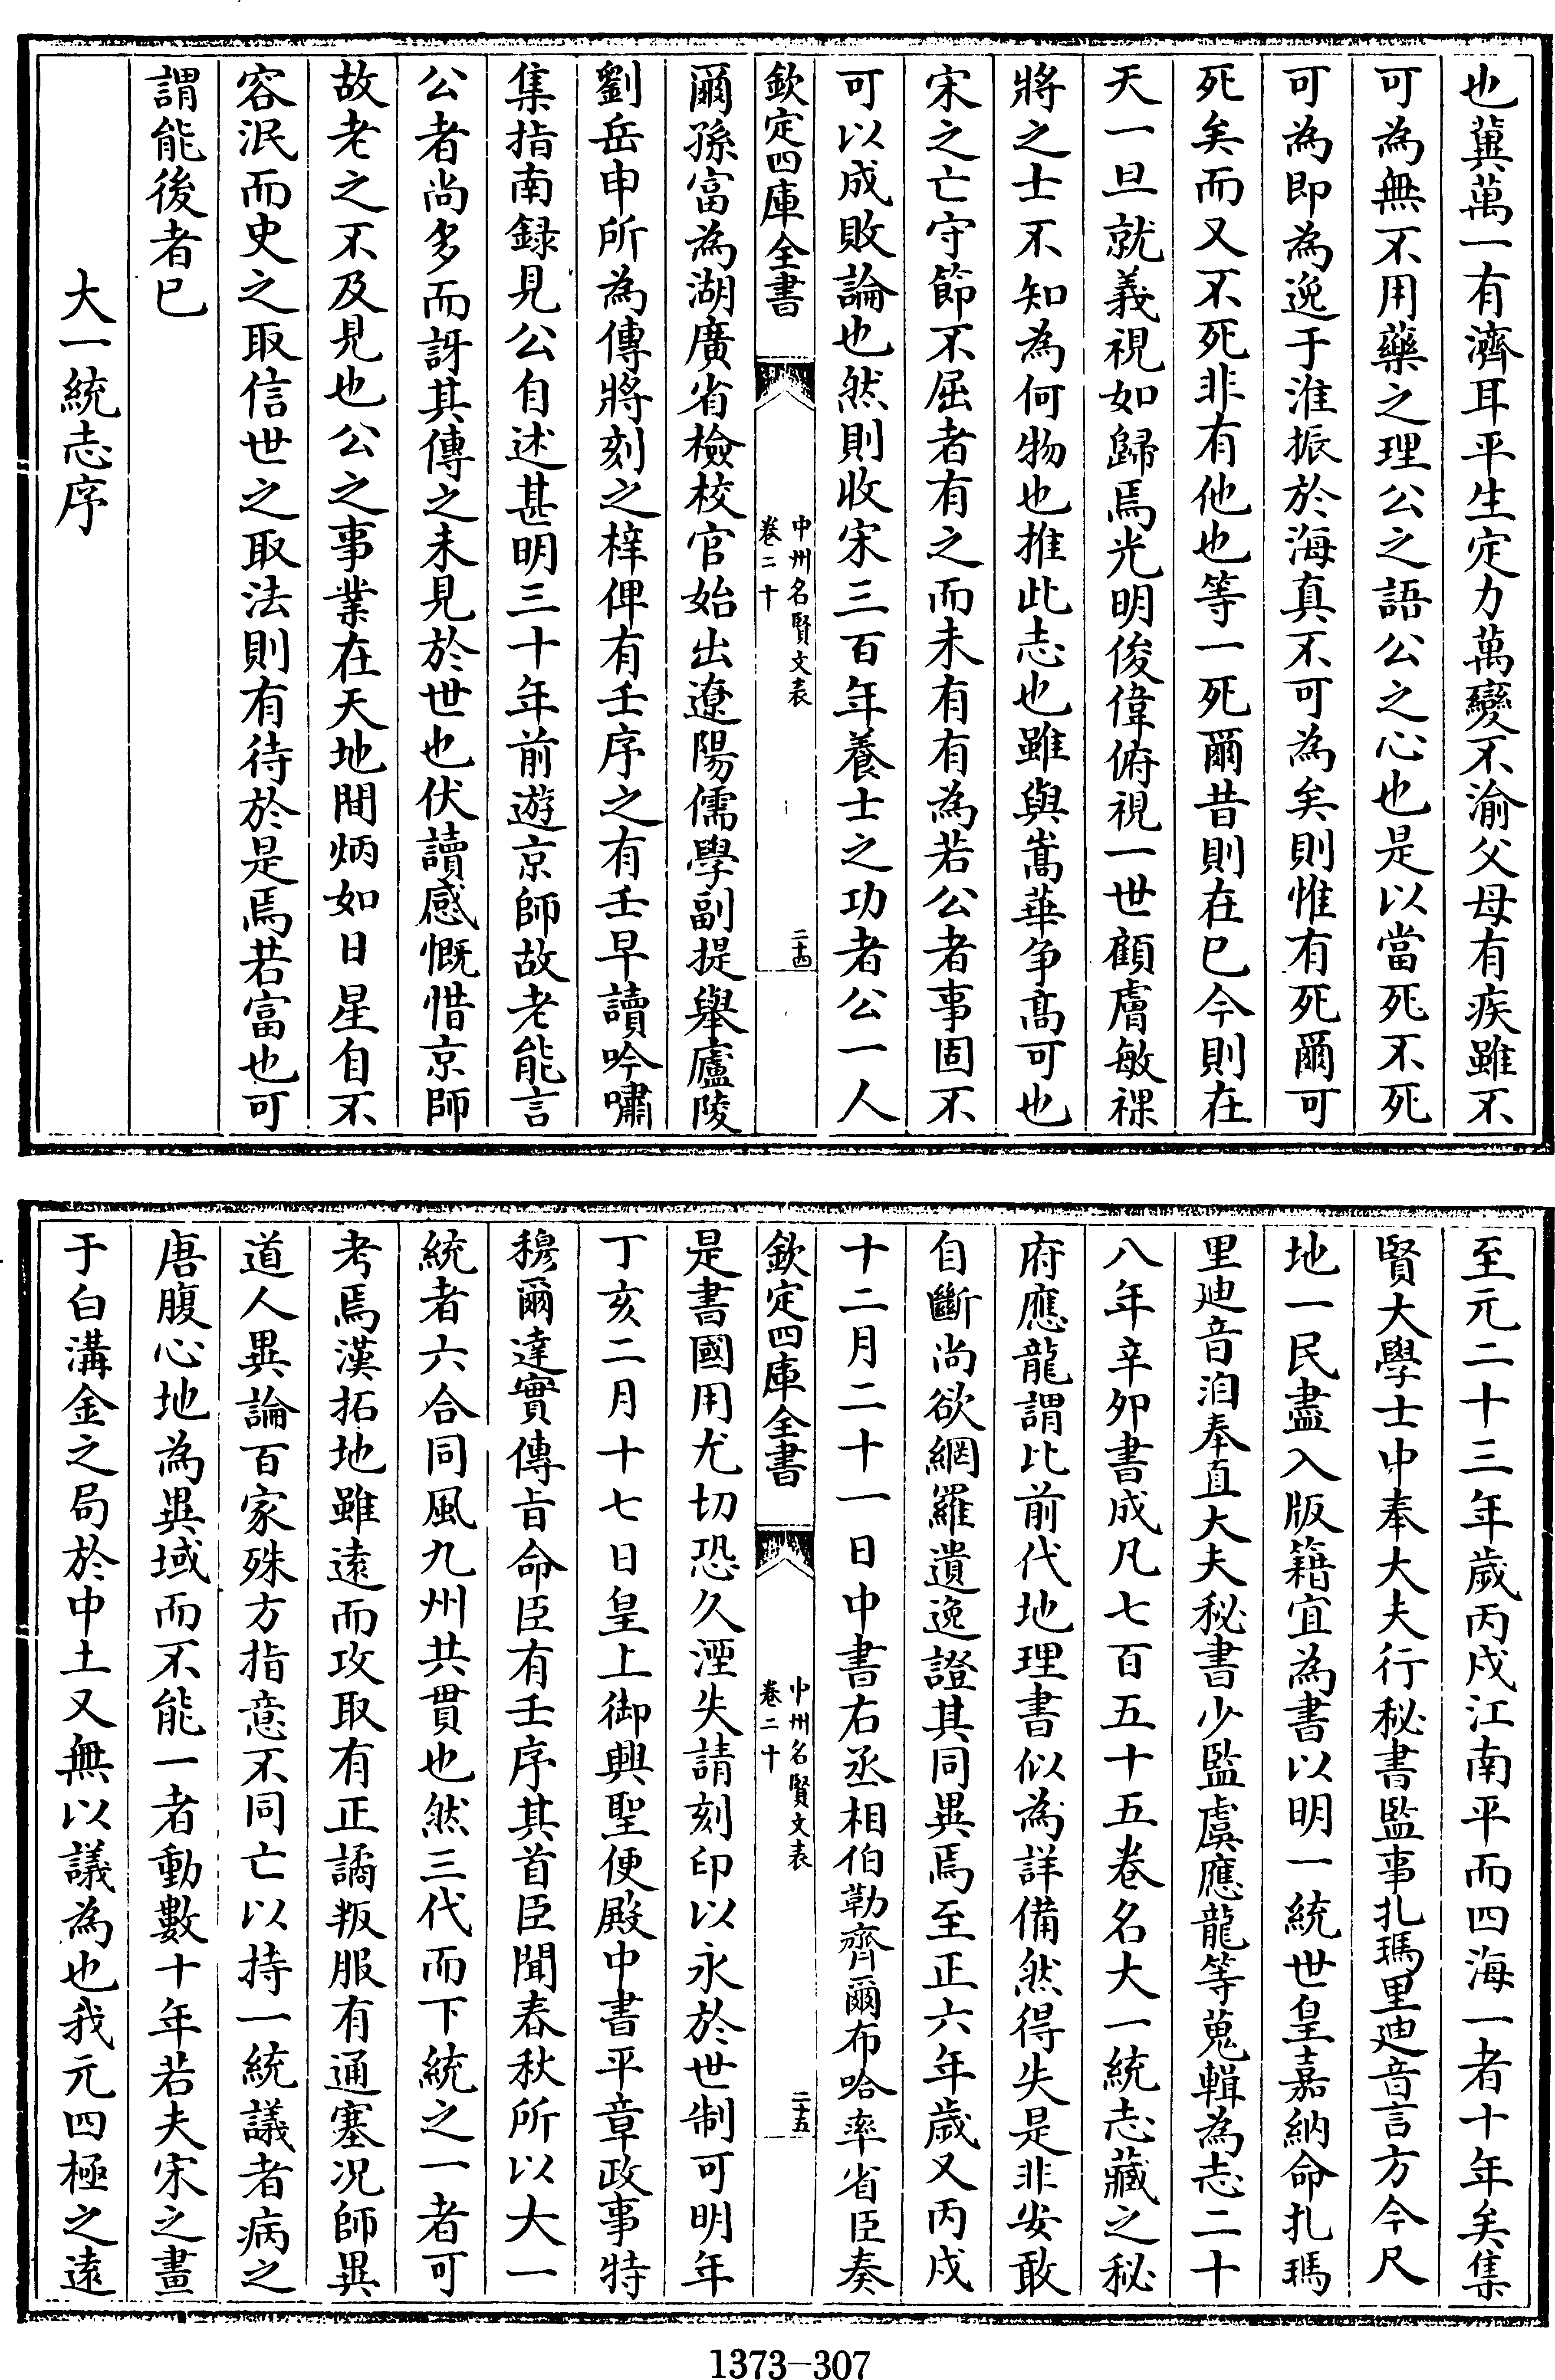 也冀萬一有濟耳平生定力萬變不渝父母有疾雖不
可為無不用藥之理公之語公之心也是以當死不死
可為即為逸于淮振於海真不可為矣則惟有死爾可
死矣而又不死非有他也等一死爾昔則在已今則在
天一旦就義視如歸焉光明俊偉俯視一世顧膚敏祼
將之士不知為何物也推此志也雖與嵩華争高可也
宋之亡守節不屈者有之而未有有為若公者事固不
可以成敗論也然則收宋三百年養士之功者公一人
欽定四庫全書
中州名賢文表
卷二十
二十四
爾孫富為湖廣省檢校官始出遼陽儒學副提舉廬陵
劉岳申所為傳將刻之梓俾有壬序之有壬早讀吟嘯
集指南録見公自述甚明三十年前遊京師故老能言
公者尚多而訝其傳之未見於世也伏讀感慨惜京師
故老之不及見也公之事業在天地間炳如日星自不
容泯而史之取信世之取法則有待於是焉若富也可
謂能後者已
大一統志序
至元二十三年歲丙戌江南平而四海一者十年矣集
賢大學士中奉大夫行秘書監事扎瑪里迪音言方今尺
地一民盡入版籍宜為書以明一統世皇嘉納命扎瑪
里迪音洎奉直大夫秘書少監虞應龍等蒐輯為志二十
八年辛卯書成凡七百五十五卷名大一統志藏之秘
府應龍謂比前代地理書似為詳備然得失是非安敢
自斷尚欲網羅遺逸證其同異焉至正六年歲又丙戌
十二月二十一日中書右丞相伯勒齊爾布哈率省臣奏
欽定四庫全書
中州名賢文表
卷二十
二十五
是書國用尤切恐久湮失請刻印以永於世制可明年
丁亥二月十七日皇上御興聖便殿中書平章政事特
穆爾達實傳旨命臣有壬序其首臣聞春秋所以大一
統者六合同風九州共貫也然三代而下統之一者可
考焉漢拓地雖遠而攻取有正譎叛服有通塞况師異
道人異論百家殊方指意不同亡以持一統議者病之
唐腹心地為異域而不能一者動數十年若夫宋之畫
于白溝金之局於中土又無以議為也我元四極之遠
1373-307